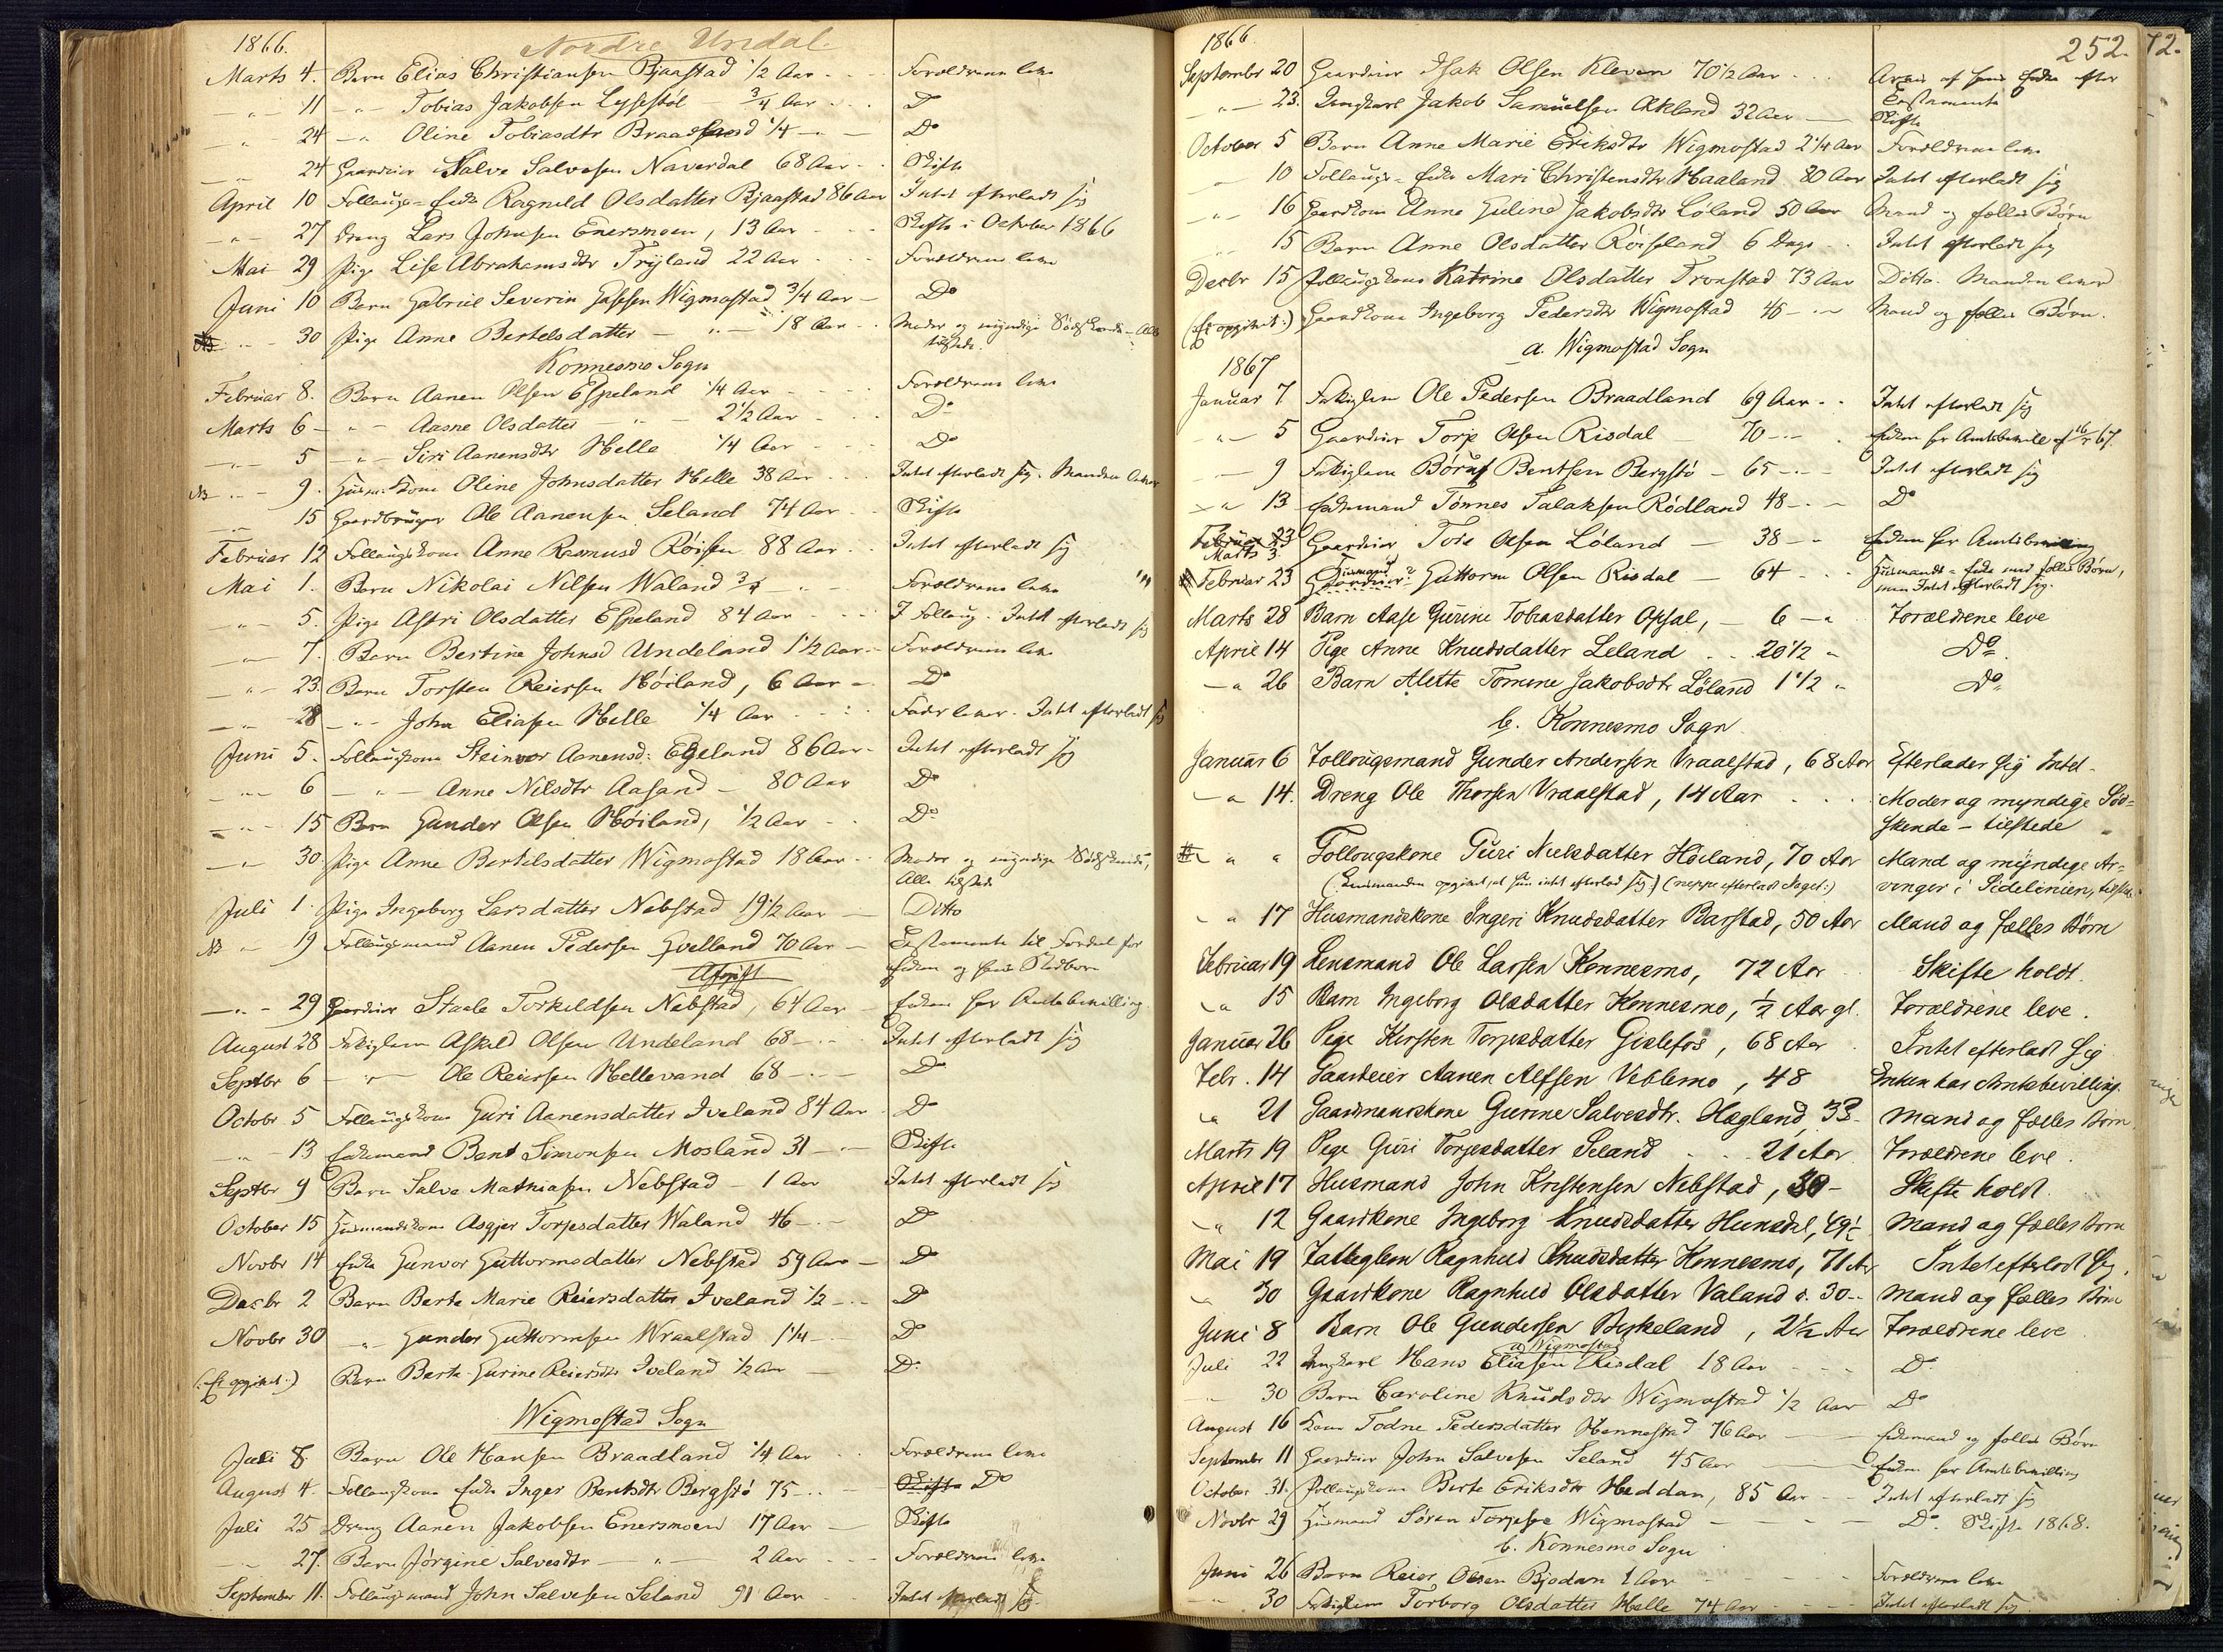 1866. Nordre Undal.
Marts 4. Barn Elias Christiansen Bjaastad 1/2 Aar Forældrene leve
" 11 " Tobias Jakobsen Lyssestøl 3/4 Aar Do
" 24 " Oline Tobiasdtr Braadland 1/4 " Do
" 24 Gaardeier Salve Salvesen Naverdal 68 Aar Skifte
April 10 Follaugs-Enke Ragnild Olsdatter Bjaastad 86 Aar Intet efterladt sig
" 27 Dreng Lars Johnsen Enersmoen, 13 Aar Skifte i October 1866
Mai 29 Pige Lise Abrahamsdtr Tryland 22 Aar Forældrene leve
Juni 10 Barn Gabriel Severin Wigmostad 3/4 Aar Do
" 30 Pige Anne Bertelsdatter " 18 Aar Moder og myndige Sødskende - Alle
tilstede
Konnesmo Sogn
Februar 8. Barn Aanen Olsen Espeland 1/4 Aar Forældrene leve
Marts 6 " Aasne Olsdatter " 2 1/2 Aar Do
" 5 " Siri Aanensdtr Helle 1/4 Aar Do
NB " 9. Husm. Kone Oline Johnsdatter Helle 38 Aar Intet efterladt sig. Manden lever
" 15 Gaardbruger Ole Aanensen Seland 74 Aar Skifte
Februar 12 Follaugskone Anne Rasmusd Røisen 88 Aar Intet efterladt sig
Mai 1. Barn Nikolai Nilsen Waland 3/4 " Forældrene leve
" 5. Pige Astri Olsdatter Espeland 84 Aar I Follaug. Intet efterladt sig
" 7. Barn Bertine Johnsd Undeland 1 1/2 Aar Forældrene leve
" 23. Barn Torsten Reiersen Høiland, 6 Aar Do
" 28 " John Eliasen Helle 1/4 Aar Fader lever. Intet efterladt sig
Juni 5. Follaugskone Steinvor Aanensd: Egeland 86 Aar Intet efterladt sig
" 6 " Anne Nilsdtr Aasand 80 Aar Do
" 15 Barn Gunder Olsen Høiland, 1/2 Aar Do
" 30. Pige Anne Bertelsdatter Wigmostad 18 Aar Moder og myndige Sødskende,
Alle tilstede
Juli 1. Pige Ingeborg Larsdatter Nebstad 19 1/2 Aar Ditto
NB " 19 Follaugsmand Aanen Pedersen Gvelland 70 Aar Testamente til Fordel for
Afgift Enken og hans Stedbørn
" 29 Gaardeier Staale Torkildsen Nebstad, 64 Aar Enken har Amtsbevilling
August 28 Fattiglem Askild Olsen Undeland 68 " Intet efterladt sig
Septbr 6 " Ole Reiersen Hellevand 68 " Do
Octobr 5 Follaugskone Guri Aanensdatter Iveland 84 Aar Do
" 13 Enkemand Bent Simonsen Mosland 31 " Skifte
Septbr 9 Barn Salve Mathiasen Nebstad 1 Aar Intet efterladt sig
October 15 Husmandskone Asgjer Torjesdatter Waland 46 " Do
Novbr 14 Enke Gunvor Guttormsdatter Nebstad 59 Aar Do
Decbr 2 Barn Berte Marie Reiersdatter Iveland 1/2 " Do
Novbr 30 " Gunder Guttormsen Wraalstad 1 1/4 " Do
(Ei opgivet:) Barn Berte Gurine Reiersdtr Iveland 1/2 Aar Do
Wigmostad Sogn
Juli 8. Barn Ole Hansen Braadland 1/4 Aar Forældrene leve
August 4. Follaugskone Enke Inger Bentsdtr Bergstø 75 " Skifte Do
Juli 25 Dreng Aanen Jakobsen Enersmoen 17 Aar Skifte
" 27. Barn Jørgine Salvesdtr " 2 Aar Forældrene leve
September 11. Follaugsmand John Salvesen Seland 91 Aar Intet efterladt sig
1866. 252. 72.
Septembr 20 Gaardeier Isak Olsen Kleven 70 1/2 Aar Arves af hans Enke efter
Testamente
" 23. Ungkarl Jakob Samuelsen Akland 32 Aar Skifte
October 5 Barn Anne Marie Eriksdtr Wigmostad 2 1/4 Aar Forældrene leve
" 10 Follaugs-Enke Mari Christensdtr Haaland 80 Aar Intet efterladt sig
" 16 Gaardkone Anne Guline Jakobsdtr Løland 50 Aar Mand og fælles Børn
" 15 Barn Anne Olsdatter Røiseland 6 Dage Intet efterladt sig
Decbr 15 Follaugskone Katrine Olsdatter Tronstad 73 Aar Ditto. Manden lever
(Ei opgivet:) Gaardkone Ingeborg Pedersdtr Wigmostad 45 " Mand og fælles Børn.
a. Wigmostad Sogn
1867
Januar 7 Fattiglem Ole Pedersen Braadland 69 Aar Intet efterladt sig
" 5 Gaardeier Torje Olsen Risdal 70 " Enken har Amtsbeville af 67.
" 9 Fattiglem Bentsen Bergstø 65 " Intet efterladt sig
" 13 Enkemand Tønnes Salaksen Rødland 48 " Do
Februar 23
Marts 3. Gaardeier Tore Olsen Løland 38 " Enken har Amtsbevilling
Februar 23 Husmand Gaardeier? Guttorm Olsen Risdal 64 Husmands-Enke med fælles Børn,
men Intet efterladt sig.
Marts 28 Barn Aase Gurine Tobiasdatter Opsal, 6 " Forældrene leve
April 14 Pige Anne Knudsdatter Leland 20 1/2 " Do
" 26 Barn Alette Tomine Jakobsdtr Løland 1 1/2 " Do
b. Konnesmo Sogn
Januar 6 Follougsmand Gunder Andersen Vraalstad, 68 Aar Efterlader sig Intet.
" 14. Dreng Ole Thorsen Vraalstad, 14 Aar Moder og myndige Sød=
skende - tilstede
" " Follougskone Guri Nielsdatter Høiland, 70 Aar Mand og myndige Ar=
(Lensmanden opgivet, at hun intet efterlod sig:) (neppe efterladt Noget:) vinger i Sidelinien, tilstede
" 17 Husmandskone Ingeri Knudsdatter Barstad, 50 Aar Mand og fælles Børn
Februar 19 Lensmand Ole Larsen Konnesmo, 72 Aar Skifte holdt.
" 15 Barn Ingeborg Olsdatter Konnesmo, 1/2 Aar gl. Forældrene leve.
Januar 26 Pige Kirsten Torjesdatter Gislefos, 68 Aar Intet efterladt sig
Febr. 14 Gaardeier Aanen Alfsen Veblemo, 48 Enken har Amtsbevilling.
" 21 Gaardmandskone Gurine Salvesdtr. Hægland, 33 Mand og fælles Børn
Marts 19 Pige Guri Torjesdatter Seland 21 Aar Forældrene leve.
April 17 Husmand John Kristensen Nebstad, 38 Skifte holdt.
" 12 Gaardkone Ingeborg Knudsdatter Hunsdal, 49 1/2 Mand og fælles Børn
Mai 19 Fattiglem Ragnhild Knudsdatter Konnesmo, 71 Aar Intet efterladt sig.
" 30 Gaardkone Ragnhild Olsdatter Valand ø. 30 Mand og fælles Børn
Juni 8 Barn Ole Gundersen Birkeland, 2 1/2 Aar Forældrene leve
a) Wigmostad
Juli 22 Ungkarl Hans Eliasen Risdal 18 Aar Do
" 30 Barn Caroline Knudsdtr Wigmostad 1/2 Aar Do
August 16 Kone Todne Pedersdatter Hennestad 76 Aar Enkemand og fælles Børn
September 11 Gaardeier John Salvesen Seland 45 Aar Enken har Amtsbevilling
October 31. Follaugskone Berte Eriksdtr Heddan, 85 Aar Intet efterladt sig
Novbr 29 Husmand Søren Torjesen Wigmostad Do. Skifte 1868.
b. Konnesmo Sogn
Juni 26 Barn Reier Olsen Bjodan 1 Aar Forældrene leve
" 30 Fattiglem Torborg Olsdatter Helle 74 Aar Intet efterladt sig.